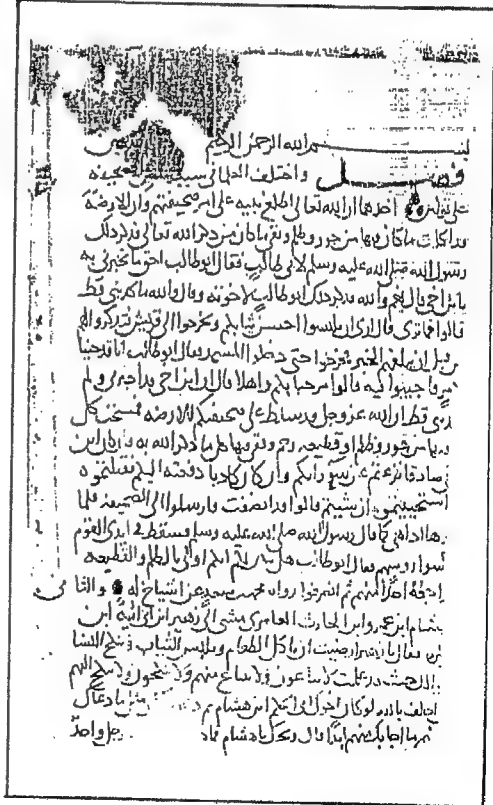 بسم الله الرحمن الرحيم
فصل واختلف العلما في سبب نقض الصحيفه
على قولين احدها ان الله تعالى اطلع نبيه على امر صحيفتهم وان الارضة
قد اكلت ما كان فيها من جور وظلم وبقي ما كان من ذكر الله تعالى فذكر ذلك
رسول الله صلى الله عليه وسلم لابي طالب فقال ابو طالب احق ما تخبرني به
يا بن اخي قال نعم والله فذكر ذلك ابو طالب لاخوته وقال والله ما كذبني قط
قالوا فما ترى قال ارى ان تلبسوا احسن ثيابكم وتخرجوا الى قريش فتذكروا لهم
قبل ان يبلغهم الخبر فخرجوا حتى دخلوا المسجد فقال ابو طالب انا قد جينا
فاجيبوا فيه قالوا مرحبا بكم واهلا قال ان ابن اخي قد اخبرني ولم
قط ان الله عز وجل قد سلط على صحيفتكم الارضه فلحست كل
من جور وظلم او قطيعه رحم وبقي فيها كل ما ذكر الله به فان كان ابن
صادقا نزعتم عن سو رايكم وان كان كاذبا دفعته اليكم فقتلتموه
استحييتموه ان شيتم قالوا قد انصفت فارسلوا الى الصحيفه فلما
هااذا هي كما قال رسول الله صلى الله عليه وسلم فسقط في ايدي القوم
روسهم فقال ابو طالب هل تبين لكم انكم اولى بالظلم والقطيعه
احد منهم ثم انصرفوا رواه محمد بن سعد عن اشياخ له والثاني
هشام ابن عمرو ابن الحارث العامري مشى الى زهير ابن ابي اميه ابن
فقال يا زهير ارضيت ان تاكل الطعام وتلبس الثياب وتنكح النسا
حيث قد علمت لا يباعون ولا يبتاع منهم ولا ينكحون ولا ينكح اليهم
احلف بالله لو كان اخوال ابي الحكم ابن هشام ثم
ما اجابك منهم ابدا قال ويحك يا هشام فماذا رجل واحد